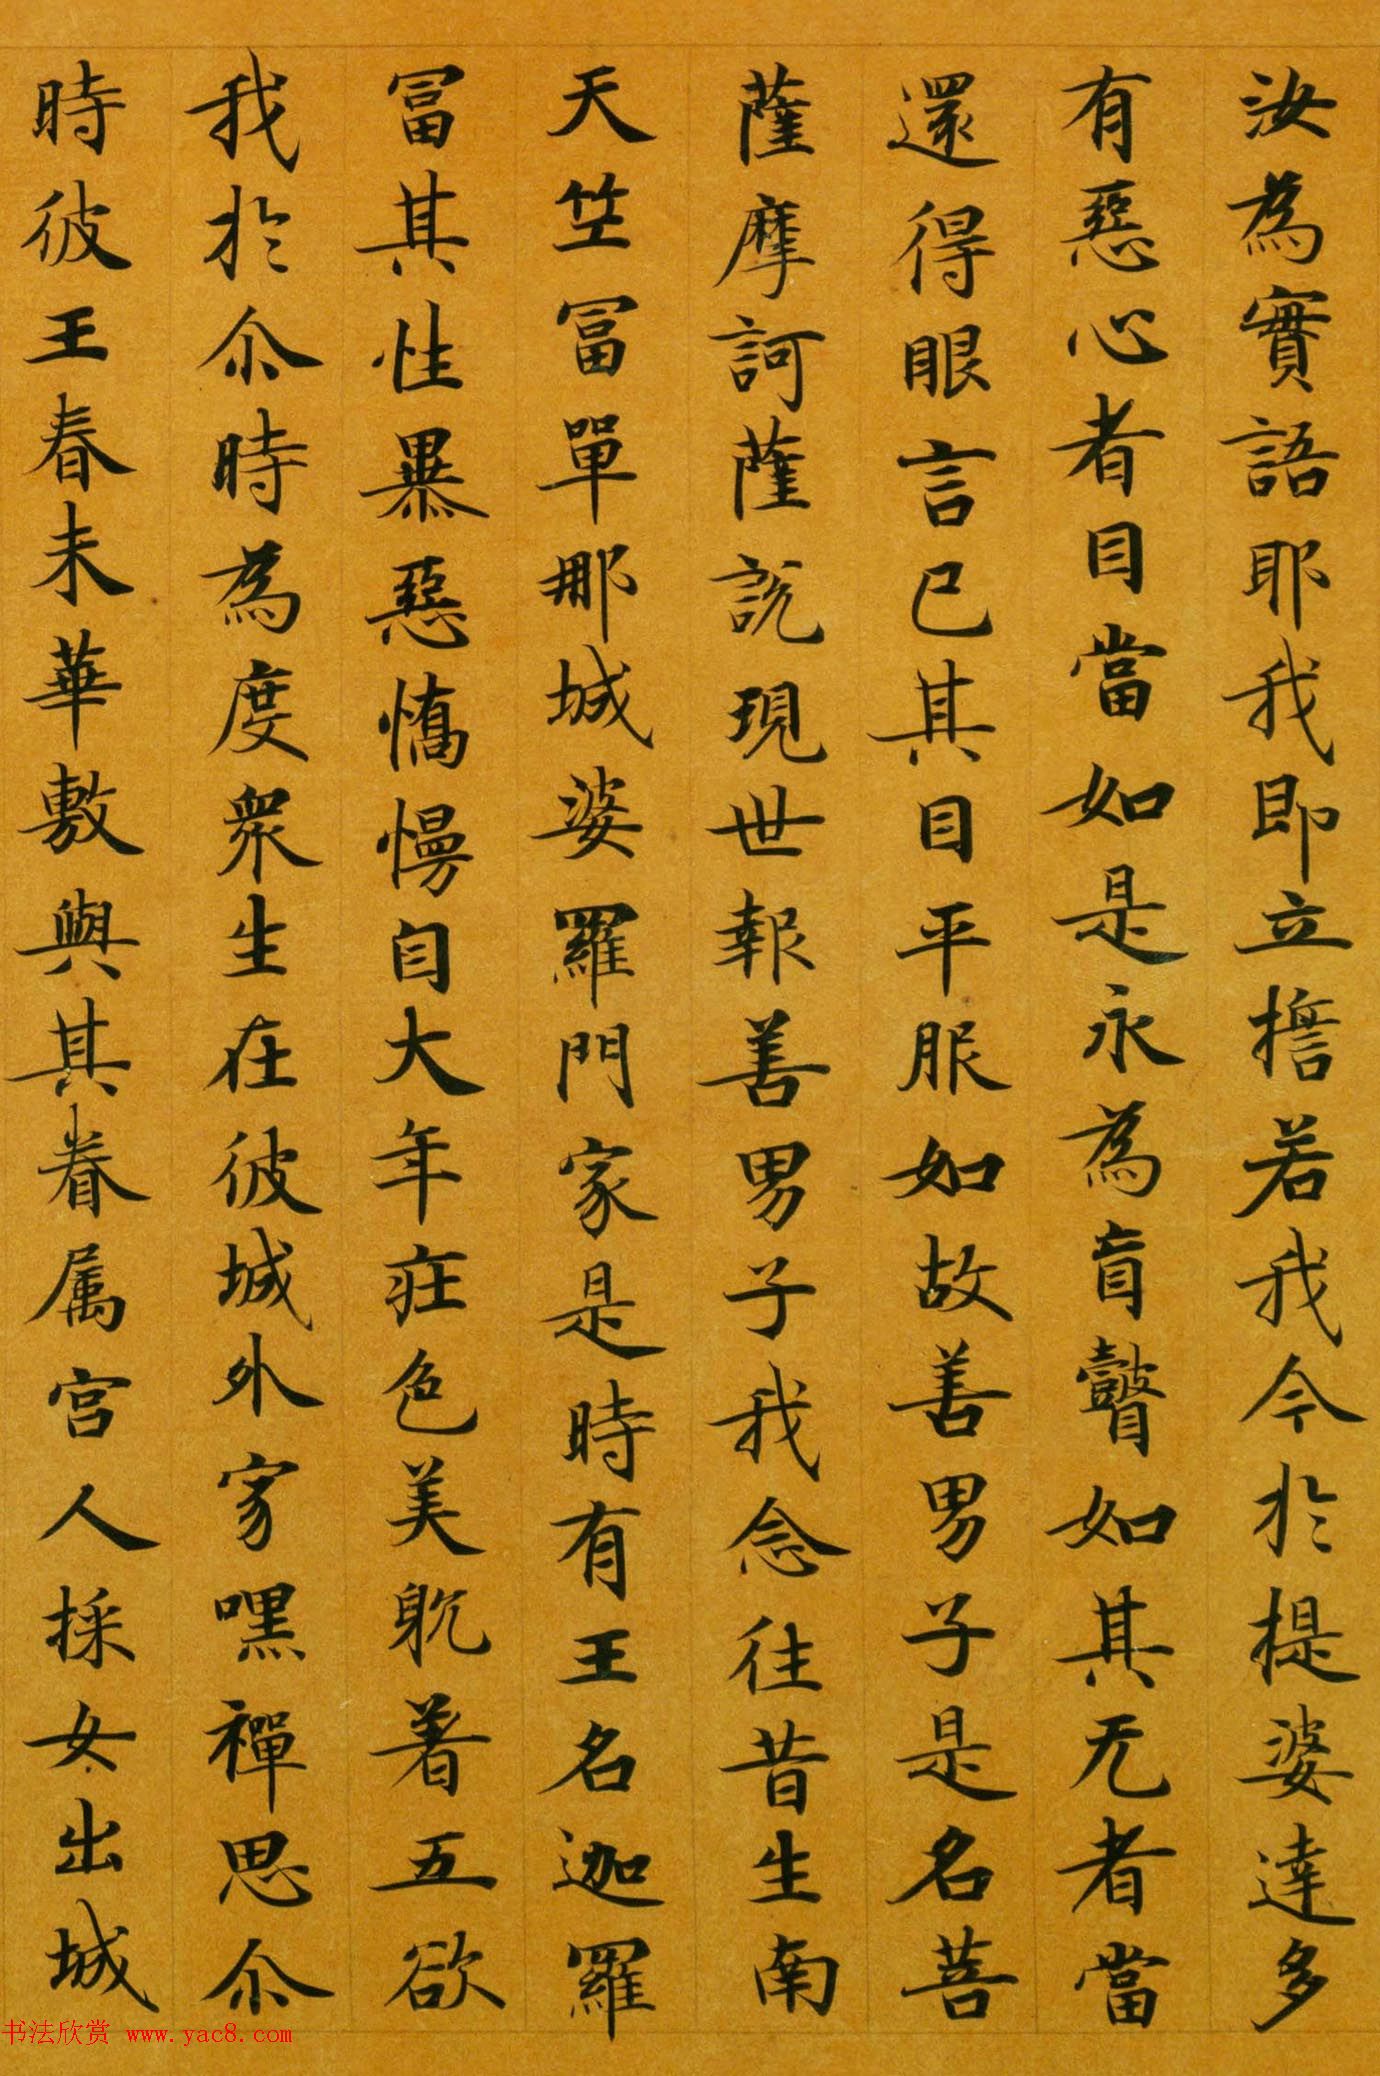 汝為實語耶我即立擔若我今於提婆達多
有惡心者目當如是永為盲瞽如其无者當
還得眼言已其目平服如故善男子是名菩
薩摩訶薩說現世報善男子我念往昔生南
天竺冨單那城婆羅門家是時有王名迦羅
冨其性暴惡憍慢自大年疘色美躭著五欲
我於尒時為度衆生在彼城外家嘿禪思尒
時彼王春末華敷與其眷属宮人採女出城
书法欣赏 www.yac8.com